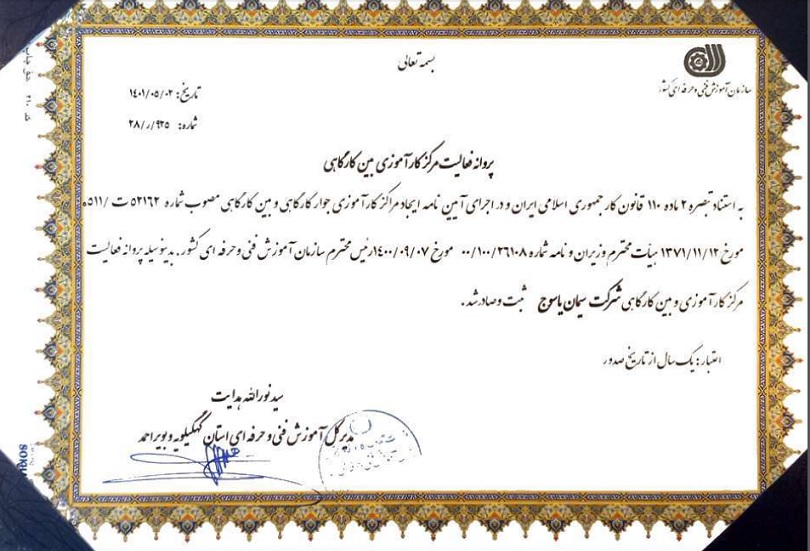 بسمه تعالی
سازمان آموزش فنی و حرفه ای کشور
تاریخ: ۱۴۰۱/۰۵/۰۲
شماره: ۲۸/ر/۹۲۵
پروانه فعالیت مرکز کارآموزی بین کارگاهی
به استناد تبصره ۲ ماده ۱۱۰ قانون کار جمهوری اسلامی ایران و در اجرای آیین نامه ایجاد مراکز کارآموزی جوار کارگاهی و بین کارگاهی مصوب شماره ۵۲۱۶۲ ت /۵۱۱ه
مورخ ۱۳۷۱/۱۱/۱۲ هیأت محترم وزیران و نامه شماره ۰۰/۱۰۰/۲۶۱۰۸ مورخ ۱۴۰۰/۰۹/۰۷ رئیس محترم سازمان آموزش فنی و حرفه ای کشور. بدینوسیله پروانه فعالیت
مرکز کارآموزی و بین کارگاهی شرکت سیمان یاسوج ثبت و صادر شد.
اعتبار: یک سال از تاریخ صدور
سید نورالله هدایت
مدیر کل آموزش فنی و حرفه ای استان کهگیلویه و بویراحمد